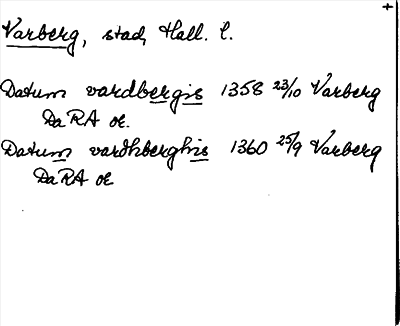 Varberg, stad, Hall. l.
Datum vardbergis 1358 23/10 Varberg
DaRA or.
Datum vardhberghis 1360 25/9 Varberg
DaRA or